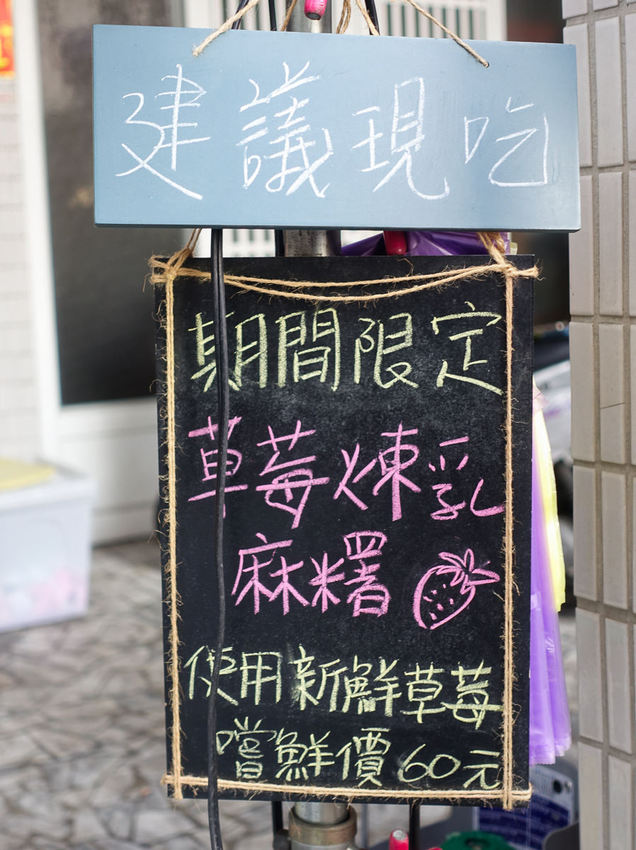 建議現吃
期間限定
草莓煉乳
麻糬
使用新鮮草莓
嚐鮮價60元